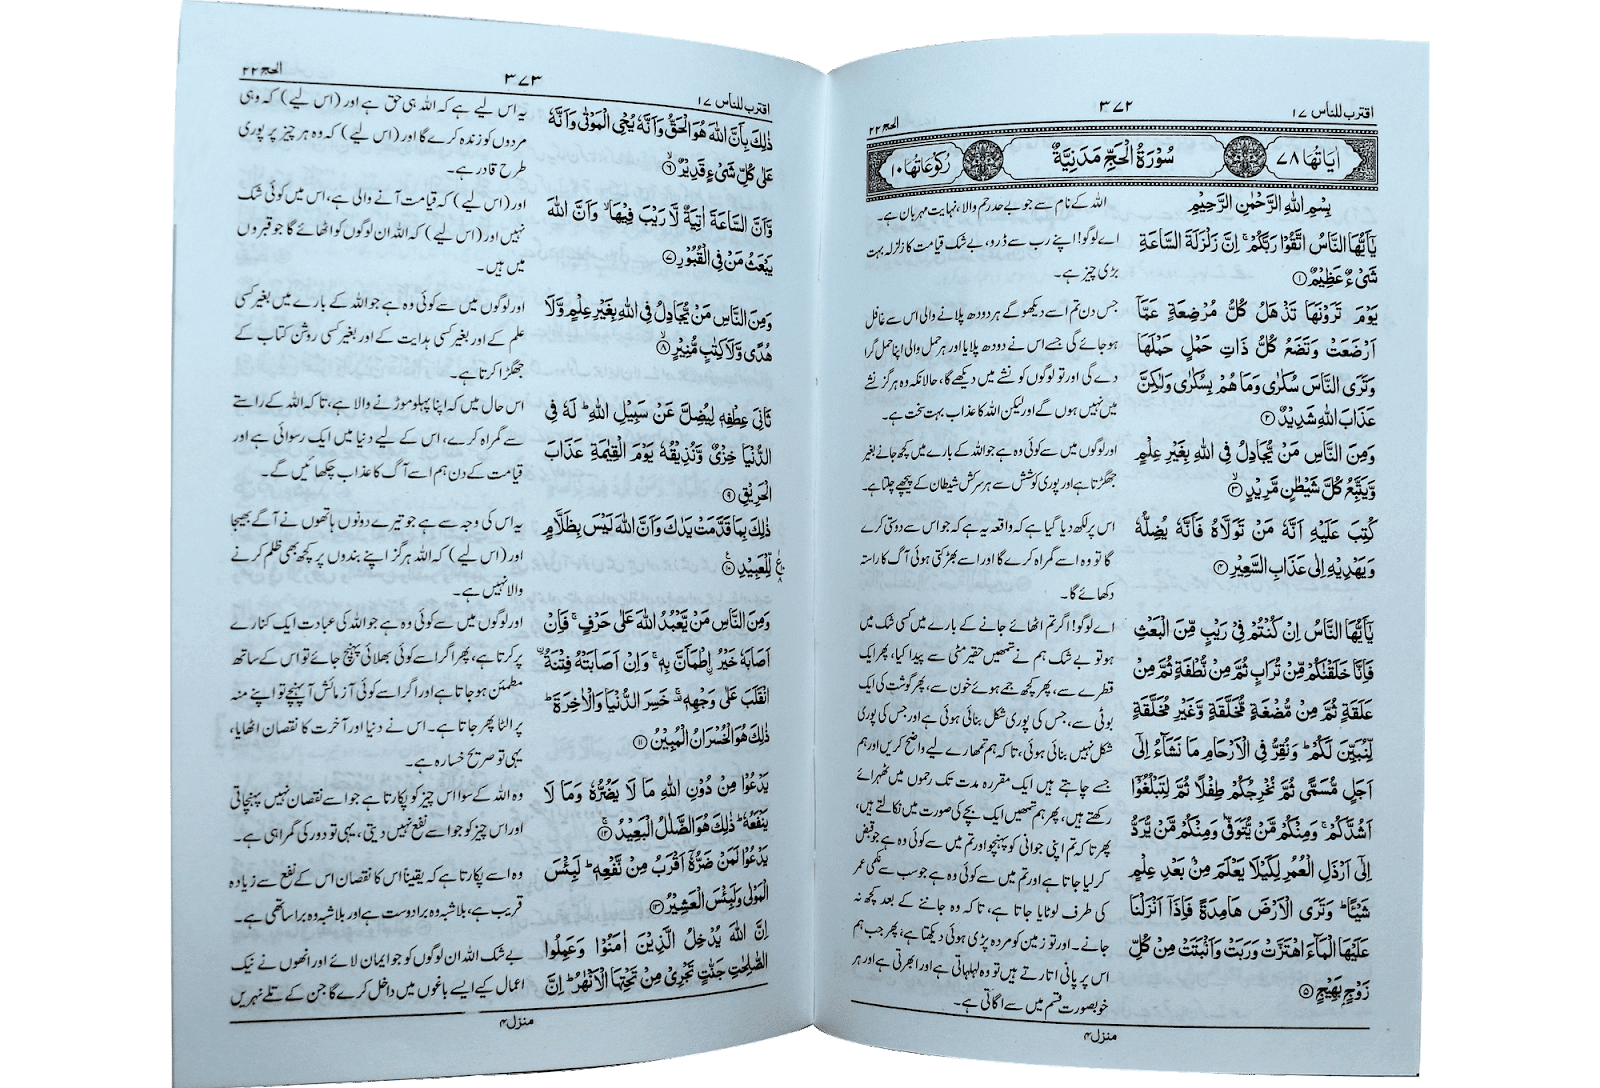 اقترب للناس ۱۷
۳۷۲
الحج ۲۲
اٰیَاتُهَا ۷۸
سُوْرَةُ الْحَجِّ مَدَنِيَّةٌ
رُكُوْعَاتُهَا ۱۰
بِسْمِ اللّٰهِ الرَّحْمٰنِ الرَّحِيْمِ
يٰۤاَيُّهَا النَّاسُ اتَّقُوْا رَبَّكُمْ ۚ اِنَّ زَلْزَلَةَ السَّاعَةِ
شَيْءٌ عَظِيْمٌ ۱
يَوْمَ تَرَوْنَهَا تَذْهَلُ كُلُّ مُرْضِعَةٍ عَمَّاۤ
اَرْضَعَتْ وَتَضَعُ كُلُّ ذَاتِ حَمْلٍ حَمْلَهَا
وَتَرَى النَّاسَ سُكٰرٰى وَمَا هُمْ بِسُكٰرٰى وَلٰكِنَّ
عَذَابَ اللّٰهِ شَدِيْدٌ ۲
وَمِنَ النَّاسِ مَنْ يُّجَادِلُ فِي اللّٰهِ بِغَيْرِ عِلْمٍ
وَّيَتَّبِعُ كُلَّ شَيْطٰنٍ مَّرِيْدٍ ۳
كُتِبَ عَلَيْهِ اَنَّهٗ مَنْ تَوَلَّاهُ فَاَنَّهٗ يُضِلُّهٗ
وَيَهْدِيْهِ اِلٰى عَذَابِ السَّعِيْرِ ۴
يٰۤاَيُّهَا النَّاسُ اِنْ كُنْتُمْ فِيْ رَيْبٍ مِّنَ الْبَعْثِ
فَاِنَّا خَلَقْنٰكُمْ مِّنْ تُرَابٍ ثُمَّ مِنْ نُّطْفَةٍ ثُمَّ مِنْ
عَلَقَةٍ ثُمَّ مِنْ مُّضْغَةٍ مُّخَلَّقَةٍ وَّغَيْرِ مُخَلَّقَةٍ
لِّنُبَيِّنَ لَكُمْ ؕ وَنُقِرُّ فِي الْاَرْحَامِ مَا نَشَآءُ اِلٰۤى
اَجَلٍ مُّسَمًّى ثُمَّ نُخْرِجُكُمْ طِفْلًا ثُمَّ لِتَبْلُغُوْۤا
اَشُدَّكُمْ ۚ وَمِنْكُمْ مَّنْ يُّتَوَفّٰى وَمِنْكُمْ مَّنْ يُّرَدُّ
اِلٰۤى اَرْذَلِ الْعُمُرِ لِكَيْلَا يَعْلَمَ مِنْۢ بَعْدِ عِلْمٍ
شَيْـًٔا ؕ وَتَرَى الْاَرْضَ هَامِدَةً فَاِذَاۤ اَنْزَلْنَا
عَلَيْهَا الْمَآءَ اهْتَزَّتْ وَرَبَتْ وَاَنْۢبَتَتْ مِنْ كُلِّ
زَوْجٍۭ بَهِيْجٍ ۵
اللہ کے نام سے جو بے حد رحم والا، نہایت مہربان ہے۔
اے لوگو! اپنے رب سے ڈرو، بے شک قیامت کا زلزلہ بہت
بڑی چیز ہے۔
جس دن تم اسے دیکھو گے ہر دودھ پلانے والی اس سے غافل
ہو جائے گی جسے اس نے دودھ پلایا اور ہر حمل والی اپنا حمل گرا
دے گی اور تو لوگوں کو نشے میں دیکھے گا، حالانکہ وہ ہرگز نشے
میں نہیں ہوں گے اور لیکن اللہ کا عذاب بہت سخت ہے۔
اور لوگوں میں سے کوئی وہ ہے جو اللہ کے بارے میں کچھ جانے بغیر
جھگڑتا ہے اور پوری کوشش سے ہر سرکش شیطان کے پیچھے چلتا ہے۔
اس پر لکھ دیا گیا ہے کہ واقعہ یہ ہے کہ جو اس سے دوستی کرے
گا تو وہ اسے گمراہ کرے گا اور اسے بھڑکتی ہوئی آگ کا راستہ
دکھائے گا۔
اے لوگو! اگر تم اٹھائے جانے کے بارے میں کسی شک میں
ہو تو بے شک ہم نے تمھیں حقیر مٹی سے پیدا کیا، پھر ایک
قطرے سے، پھر کچھ جمے ہوئے خون سے، پھر گوشت کی ایک
بوٹی سے، جس کی پوری شکل بنائی ہوئی ہے اور جس کی پوری
شکل نہیں بنائی ہوئی، تاکہ ہم تمھارے لیے واضح کریں اور ہم
جسے چاہتے ہیں ایک مقررہ مدت تک رحموں میں ٹھہرائے
رکھتے ہیں، پھر ہم تمھیں ایک بچے کی صورت میں نکالتے ہیں،
پھر تاکہ تم اپنی جوانی کو پہنچو اور تم میں سے کوئی وہ ہے جو قبض
کر لیا جاتا ہے اور تم میں سے کوئی وہ ہے جو سب سے نکمی عمر
کی طرف لوٹایا جاتا ہے، تاکہ وہ جاننے کے بعد کچھ نہ
جانے۔ اور تو زمین کو مردہ پڑی ہوئی دیکھتا ہے، پھر جب ہم
اس پر پانی اتارتے ہیں تو وہ لہلہاتی ہے اور ابھرتی ہے اور ہر
خوبصورت قسم میں سے اگاتی ہے۔
منزل ۴
اقترب للناس ۱۷
۳۷۳
الحج ۲۲
ذٰلِكَ بِاَنَّ اللّٰهَ هُوَ الْحَقُّ وَاَنَّهٗ يُحْيِ الْمَوْتٰى وَاَنَّهٗ
عَلٰى كُلِّ شَيْءٍ قَدِيْرٌ ۶
وَّاَنَّ السَّاعَةَ اٰتِيَةٌ لَّا رَيْبَ فِيْهَا ۙ وَاَنَّ اللّٰهَ
يَبْعَثُ مَنْ فِي الْقُبُوْرِ ۷
وَمِنَ النَّاسِ مَنْ يُّجَادِلُ فِي اللّٰهِ بِغَيْرِ عِلْمٍ وَّلَا
هُدًى وَّلَا كِتٰبٍ مُّنِيْرٍ ۸
ثَانِيَ عِطْفِهٖ لِيُضِلَّ عَنْ سَبِيْلِ اللّٰهِ ؕ لَهٗ فِي
الدُّنْيَا خِزْيٌ وَّنُذِيْقُهٗ يَوْمَ الْقِيٰمَةِ عَذَابَ
الْحَرِيْقِ ۹
ذٰلِكَ بِمَا قَدَّمَتْ يَدٰكَ وَاَنَّ اللّٰهَ لَيْسَ بِظَلَّامٍ
لِّلْعَبِيْدِ ۱۰
وَمِنَ النَّاسِ مَنْ يَّعْبُدُ اللّٰهَ عَلٰى حَرْفٍ ۚ فَاِنْ
اَصَابَهٗ خَيْرُ ِۨاطْمَاَنَّ بِهٖ ۚ وَاِنْ اَصَابَتْهُ فِتْنَةُ
ِۨانْقَلَبَ عَلٰى وَجْهِهٖ ۚ خَسِرَ الدُّنْيَا وَالْاٰخِرَةَ ؕ
ذٰلِكَ هُوَ الْخُسْرَانُ الْمُبِيْنُ ۱۱
يَدْعُوْا مِنْ دُوْنِ اللّٰهِ مَا لَا يَضُرُّهٗ وَمَا لَا
يَنْفَعُهٗ ؕ ذٰلِكَ هُوَ الضَّلٰلُ الْبَعِيْدُ ۱۲
يَدْعُوْا لَمَنْ ضَرُّهٗۤ اَقْرَبُ مِنْ نَّفْعِهٖ ؕ لَبِئْسَ
الْمَوْلٰى وَلَبِئْسَ الْعَشِيْرُ ۱۳
اِنَّ اللّٰهَ يُدْخِلُ الَّذِيْنَ اٰمَنُوْا وَعَمِلُوا
الصّٰلِحٰتِ جَنّٰتٍ تَجْرِيْ مِنْ تَحْتِهَا الْاَنْهٰرُ ؕ اِنَّ
یہ اس لیے ہے کہ اللہ ہی حق ہے اور (اس لیے) کہ وہی
مردوں کو زندہ کرے گا اور (اس لیے) کہ وہ ہر چیز پر پوری
طرح قادر ہے۔
اور (اس لیے) کہ قیامت آنے والی ہے، اس میں کوئی شک
نہیں اور (اس لیے) کہ اللہ ان لوگوں کو اٹھائے گا جو قبروں
میں ہیں۔
اور لوگوں میں سے کوئی وہ ہے جو اللہ کے بارے میں بغیر کسی
علم کے اور بغیر کسی ہدایت کے اور بغیر کسی روشن کتاب کے
جھگڑا کرتا ہے۔
اس حال میں کہ اپنا پہلو موڑنے والا ہے، تاکہ اللہ کے راستے
سے گمراہ کرے، اس کے لیے دنیا میں ایک رسوائی ہے اور
قیامت کے دن ہم اسے آگ کا عذاب چکھائیں گے۔
یہ اس کی وجہ سے ہے جو تیرے دونوں ہاتھوں نے آگے بھیجا
اور (اس لیے) کہ اللہ ہرگز اپنے بندوں پر کچھ بھی ظلم کرنے
والا نہیں ہے۔
اور لوگوں میں سے کوئی وہ ہے جو اللہ کی عبادت ایک کنارے
پر کرتا ہے، پھر اگر اسے کوئی بھلائی پہنچ جائے تو اس کے ساتھ
مطمئن ہو جاتا ہے اور اگر اسے کوئی آزمائش آ پہنچے تو اپنے منہ
پر الٹا پھر جاتا ہے۔ اس نے دنیا اور آخرت کا نقصان اٹھایا،
یہی تو صریح خسارہ ہے۔
وہ اللہ کے سوا اس چیز کو پکارتا ہے جو اسے نقصان نہیں پہنچاتی
اور اس چیز کو جو اسے نفع نہیں دیتی، یہی تو دور کی گمراہی ہے۔
وہ اسے پکارتا ہے کہ یقیناً اس کا نقصان اس کے نفع سے زیادہ
قریب ہے، بلاشبہ وہ برا دوست ہے اور بلاشبہ وہ برا ساتھی ہے۔
بے شک اللہ ان لوگوں کو جو ایمان لائے اور انھوں نے نیک
اعمال کیے ایسے باغوں میں داخل کرے گا جن کے تلے نہریں
منزل ۴